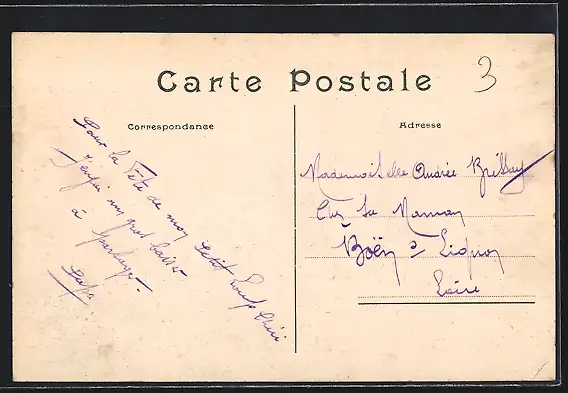 Carte Postale
3
Correspondance
Pour la Fête de mon petit Loup Chéri
un gros baiser
à
Papa
Adresse
Mademoiselle Andrée
Chez Sa Maman
Boën s Lignon
Loire